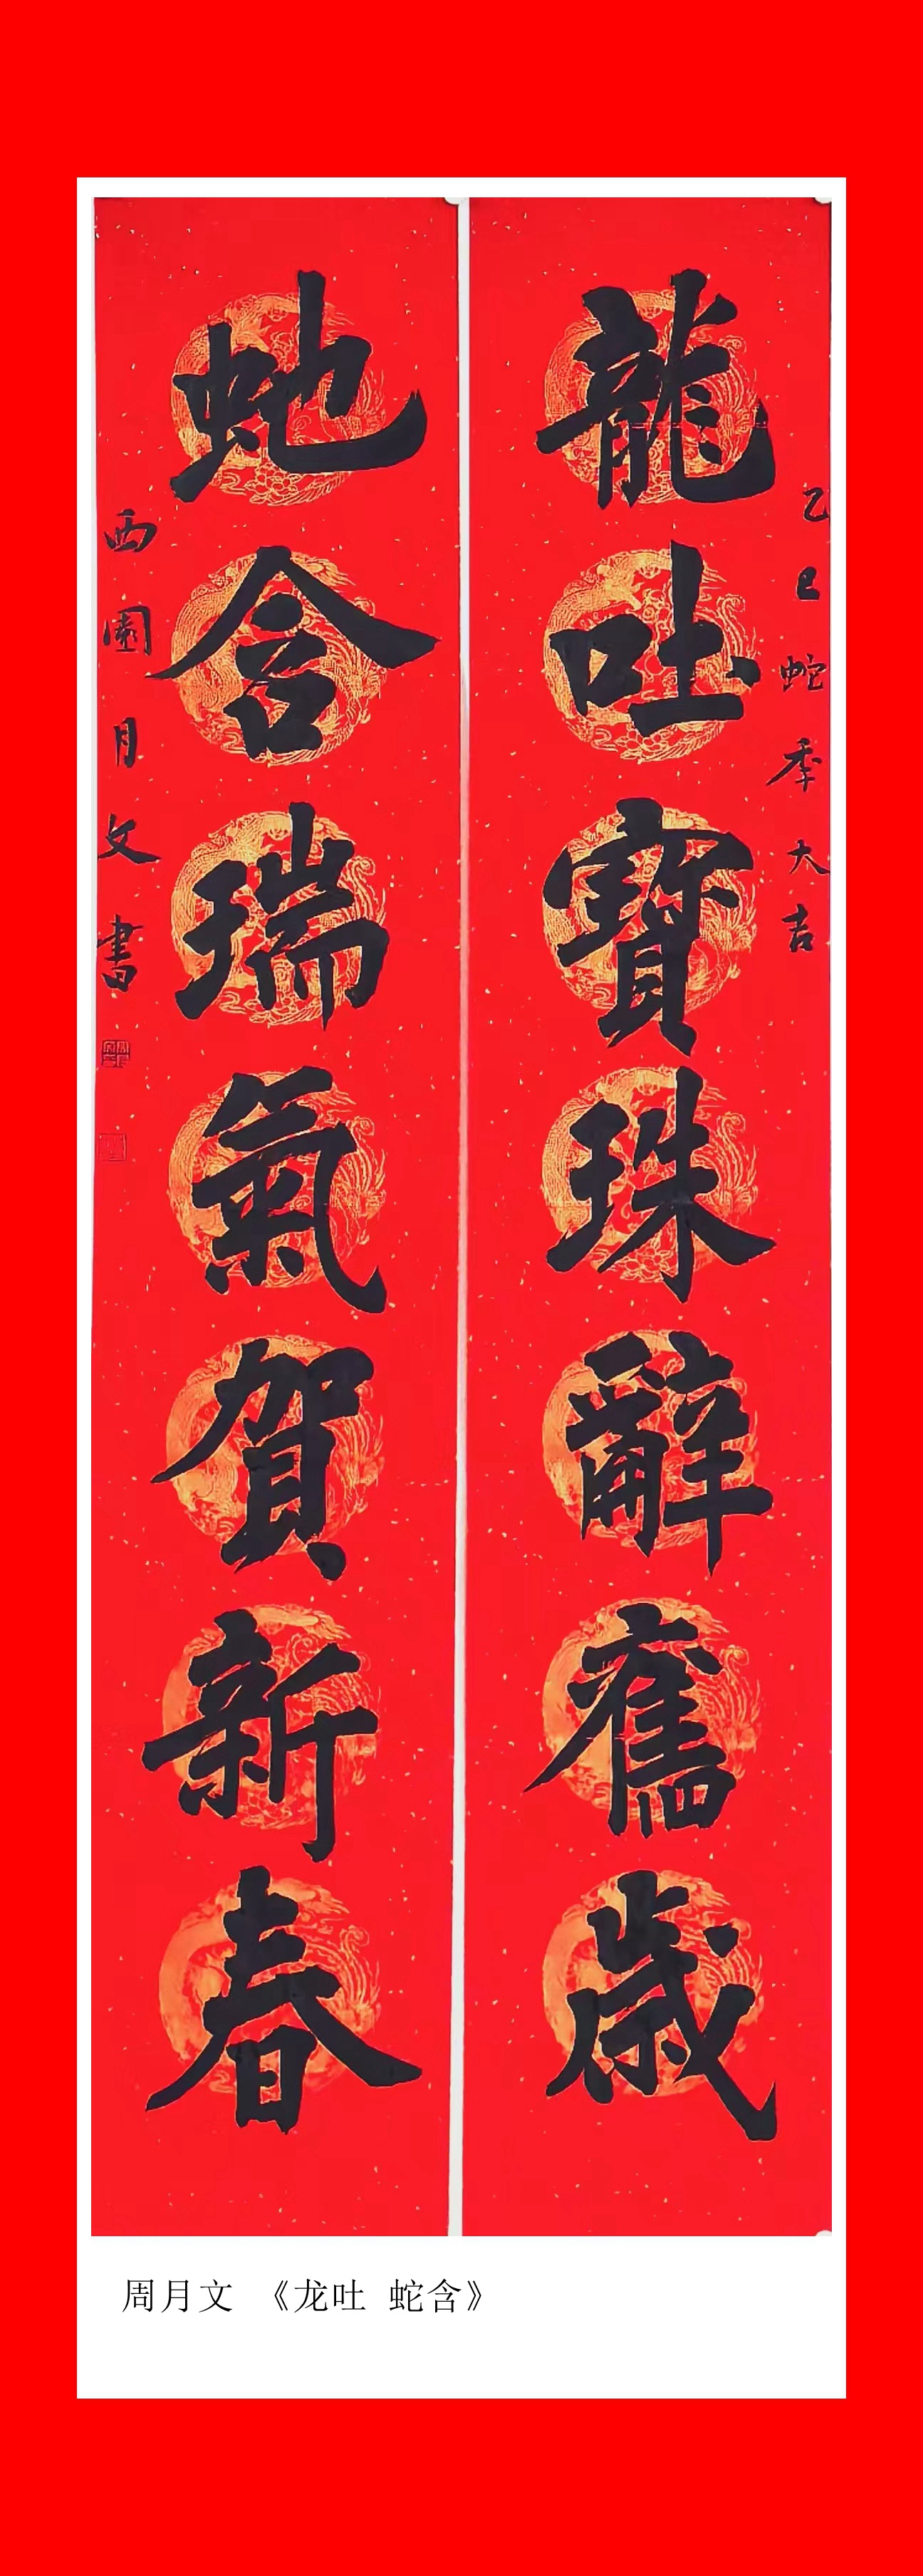 乙巳蛇年大吉
龍吐寶珠辭舊歲
虵含瑞氣賀新春
西園月文書
周月文 《龙吐 蛇含》